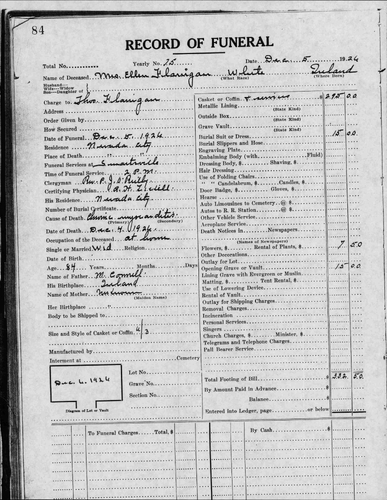 84
RECORD OF FUNERAL
Total No. Yearly No. 75 Date Dec. 5 1926
Name of Deceased Mrs Ellen Flanigan White Ireland
(What Race) (Where Born)
Husband—
Wife—Widow
Son—Daughter of
Charge to Thos. Flanigan
Address
Order Given by
How Secured
Date of Funeral Dec. 5, 1926
Residence Nevada City
Place of Death "
Funeral Services at Smartsville
Time of Funeral Service 2 P.M.
Clergyman Rev. P. J. O'Reilly
Certifying Physician A. H.
His Residence Nevada City
Number of Burial Certificate
Cause of Death myocarditis
(Primary) (Secondary)
Date of Death Dec. 4, 1926
Occupation of the Deceased at home
Single or Married Wid Religion
Date of Birth
Age 84 Years Months Days
Name of Father M. Connell
His Birthplace Ireland
Name of Mother Unknown
(Maiden Name)
Her Birthplace "
Body to be Shipped to
Size and Style of Casket or Coffin 6/3
Manufactured by
Interment at Cemetery
Lot No.
Grave No.
Section No.
Dec. 6, 1926
Diagram of Lot or Vault
Casket or Coffin & $ 295 00
(State Kind)
Metallic Lining
(State Kind)
Outside Box
(State Kind)
Grave Vault
(State Kind)
Burial Suit 15 00
Burial Slippers and Hose
Engraving Plate
Embalming Body (with Fluid)
Dressing Body, $ Shaving, $
Hair Dressing
Use of Folding Chairs
" " Candelabrum, $ Candles, $
Door Badge, $ Gloves, $
Hearse
Auto Limousines to Cemetery @ $
Autos to R. R. Station @ $
Other Vehicle Service
Aeroplane Service
Death Notices in Newspapers
(Names of Newspapers)
Flowers, $ Rental of Plants, $ 7 50
Other Decorations
Outlay for Lot
Opening Grave or Vault 15 00
Lining Grave with Evergreen or Muslin
Matting, $ Tent Rental, $
Use of Lowering Device
Rental of Vault
Outlay for Shipping Charges
Removal Charges
Incineration
Personal Services
Singers
Church Charges, $ Minister, $
Telegrams and Telephone Charges
Pall Bearer Service
Total Footing of Bill $ 332 50
By Amount Paid in Advance
Balance $
Entered into Ledger, page or below
To Funeral Charges Total, $ By Cash $